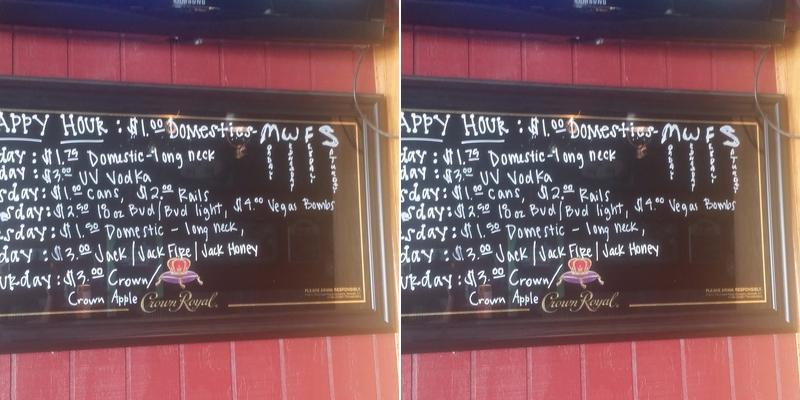 SAMSUNG
APPY HOUR : $1.00 Domestics - M W F S
day : $1.75 Domestic - long neck
day : $3.00 UV Vodka
sday : $1.00 Cans, $2.00 Rails
sday : $2.50 18 oz Bud/Bud light, $4.00 Vegas Bombs
sday : $1.50 Domestic - long neck,
day : $3.00 Jack/Jack Fire/Jack Honey
urday : $3.00 Crown/
Crown Apple
Crown Royal
PLEASE DRINK RESPONSIBLY.
SAMSUNG
APPY HOUR : $1.00 Domestics - M W F S
day : $1.75 Domestic - long neck
day : $3.00 UV Vodka
sday : $1.00 Cans, $2.00 Rails
sday : $2.50 18 oz Bud/Bud light, $4.00 Vegas Bombs
sday : $1.50 Domestic - long neck,
day : $3.00 Jack/Jack Fire/Jack Honey
urday : $3.00 Crown/
Crown Apple
Crown Royal
PLEASE DRINK RESPONSIBLY.